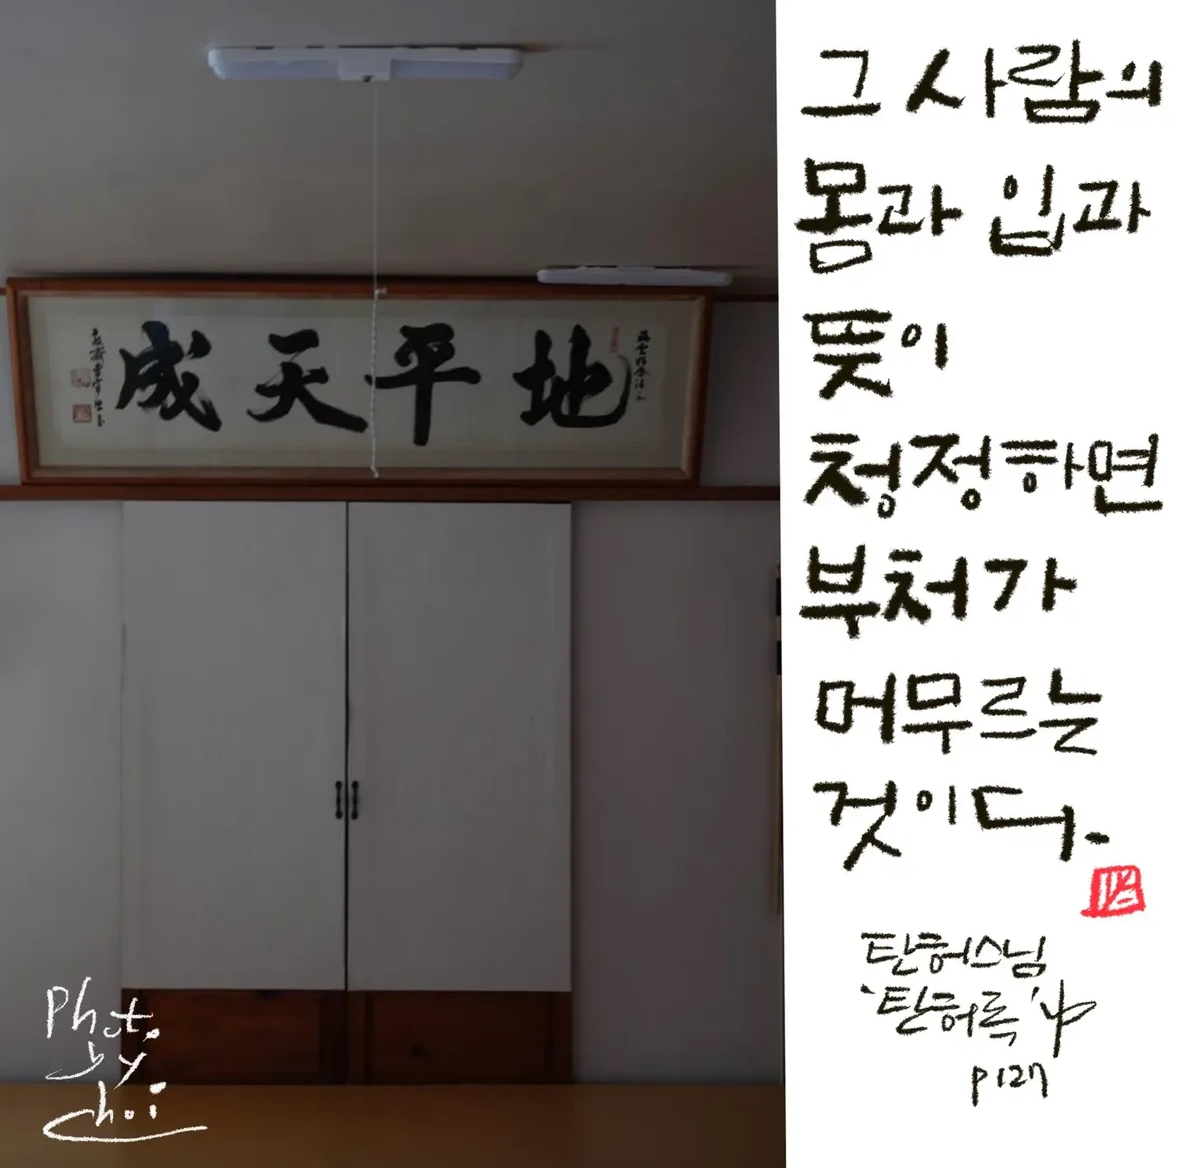 地平天成
그 사람의
몸과 입과
뜻이
청정하면
부처가
머무르는
것이다.
탄허스님
'탄허록' 中
p127
Photo
by
choi